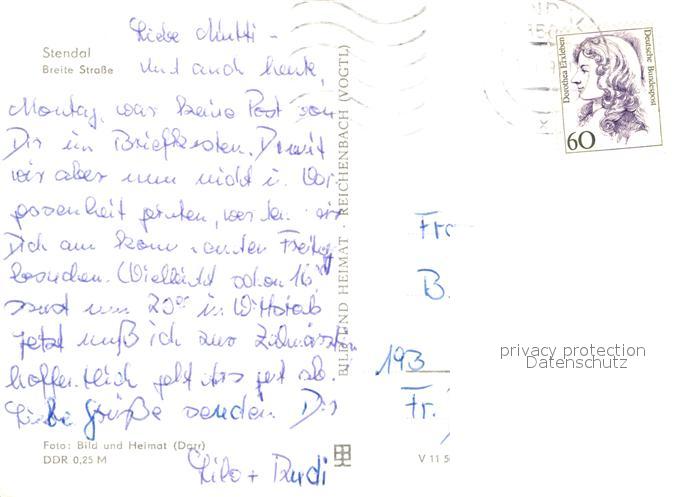 Stendal
Breite Straße
Liebe Mutti -
Und auch heute,
Montag, war keine Post von
Dir im Briefkasten. Damit
wir aber nun nicht i. Ver
gessenheit geraten, werden wir
Dich am kommenden Freitag
besuchen. (Vielleicht schon 16
sonst um 20°° i. Wittstock
jetzt muß ich zur Zahnärztin
hoffentlich geht das gut ab.
Liebe Grüße senden Dir
Lilo + Rudi
Foto: Bild und Heimat (Darr)
DDR 0,25 M
BILD UND HEIMAT · REICHENBACH (VOGTL)
V 11 5
Dorothea Erxleben
Deutsche Bundespost
60
Fr
B.
193
Fr.
privacy protection
Datenschutz